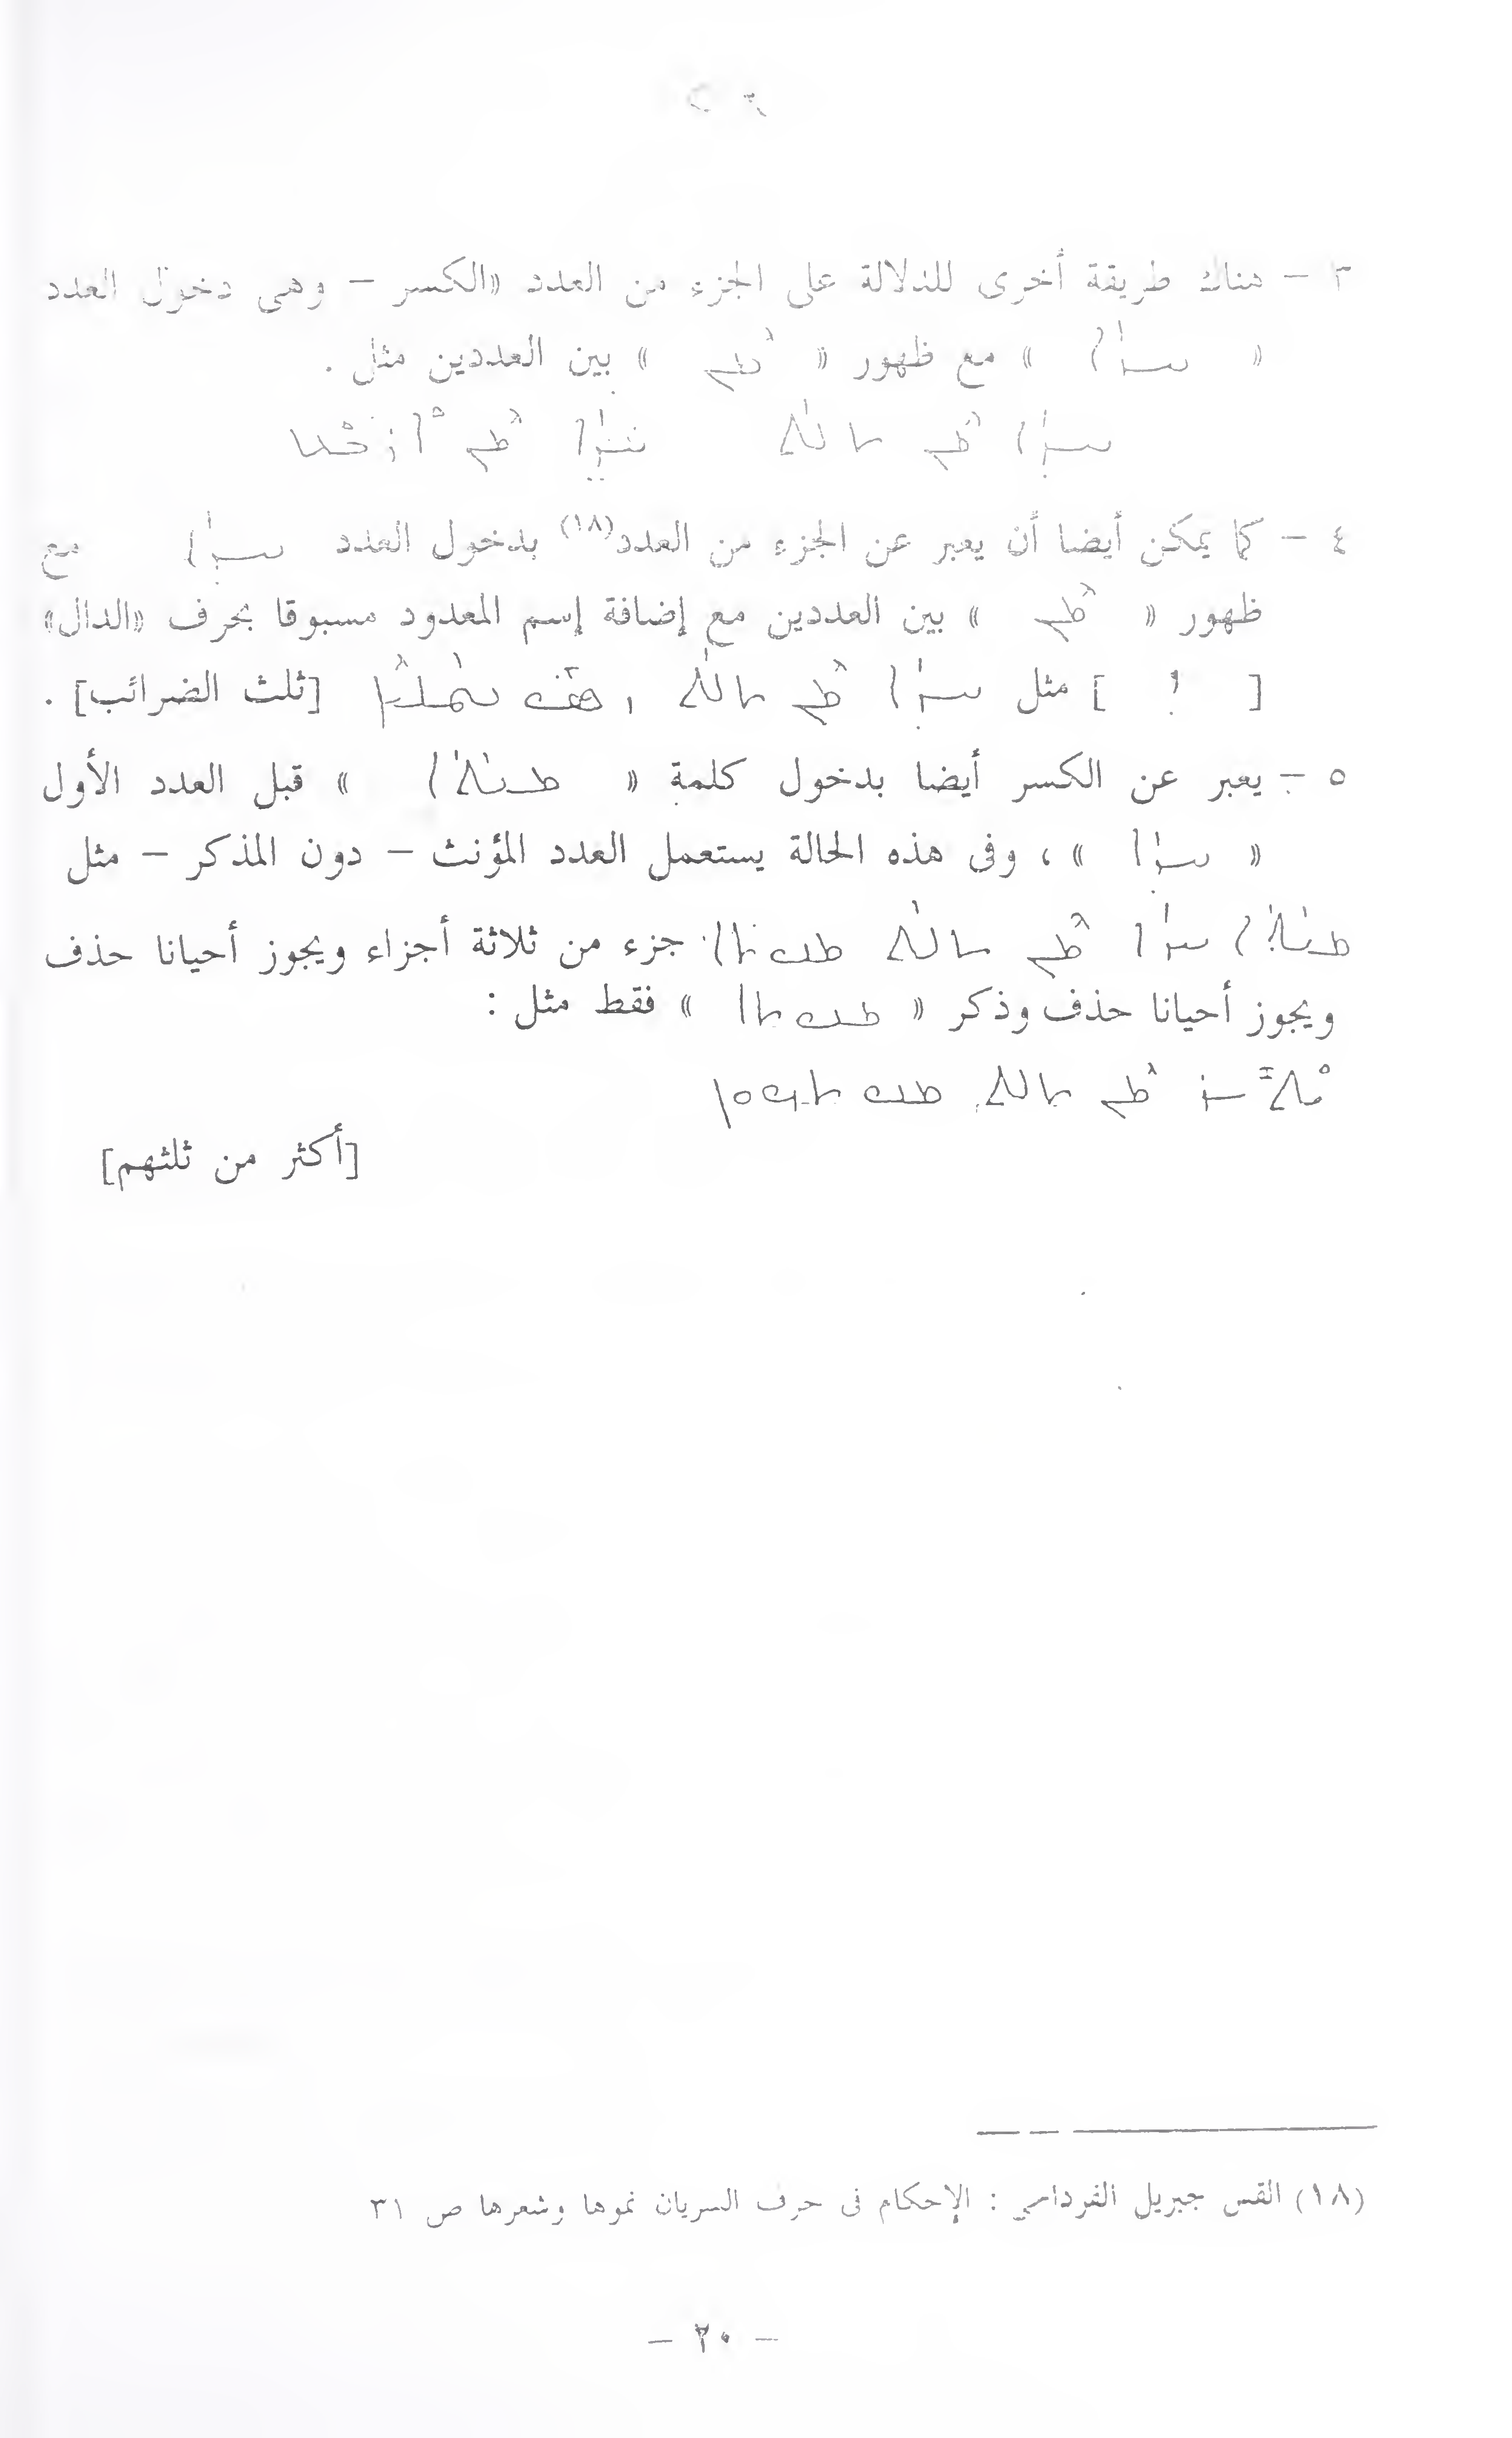 ٣ – هناك طريقة أخرى للدلالة على الجزء من العدد «الكسر – وهى دخول العدد
« ܚܕܐ » مع ظهور « ܡܢ » بين العددين مثل .
ܚܕܐ ܡܢ ܬܠܬ ܚܕܐ ܡܢ ܐܪܒܥ
٤ – كما يمكن أيضا أن يعبر عن الجزء من العدد(١٨) بدخول العدد ܚܕܐ مع
ظهور « ܡܢ » بين العددين مع إضافة إسم المعدود مسبوقا بحرف «الدال»
[ ܕ ] مثل ܚܕܐ ܡܢ ܬܠܬ [ثلث الضرائب] .
٥ – يعبر عن الكسر أيضا بدخول كلمة « ܡܢܬܐ » قبل العدد الأول
« ܚܕܐ » ، وفى هذه الحالة يستعمل العدد المؤنث – دون المذكر – مثل
ܡܢܬܐ ܚܕܐ ܡܢ ܬܠܬ ܡܢܘܬܐ جزء من ثلاثة أجزاء ويجوز أحيانا حذف
ويجوز أحيانا حذف وذكر « ܡܢܘܬܐ » فقط مثل :
ܝܬܝܪ ܡܢ ܬܠܬ ܡܢܘܬܗܘܢ
[أكثر من ثلثهم]
(١٨) القس جبريل القرداحي : الإحكام فى حرف السريان نموها وشعرها ص ٣١
– ٢٠ –